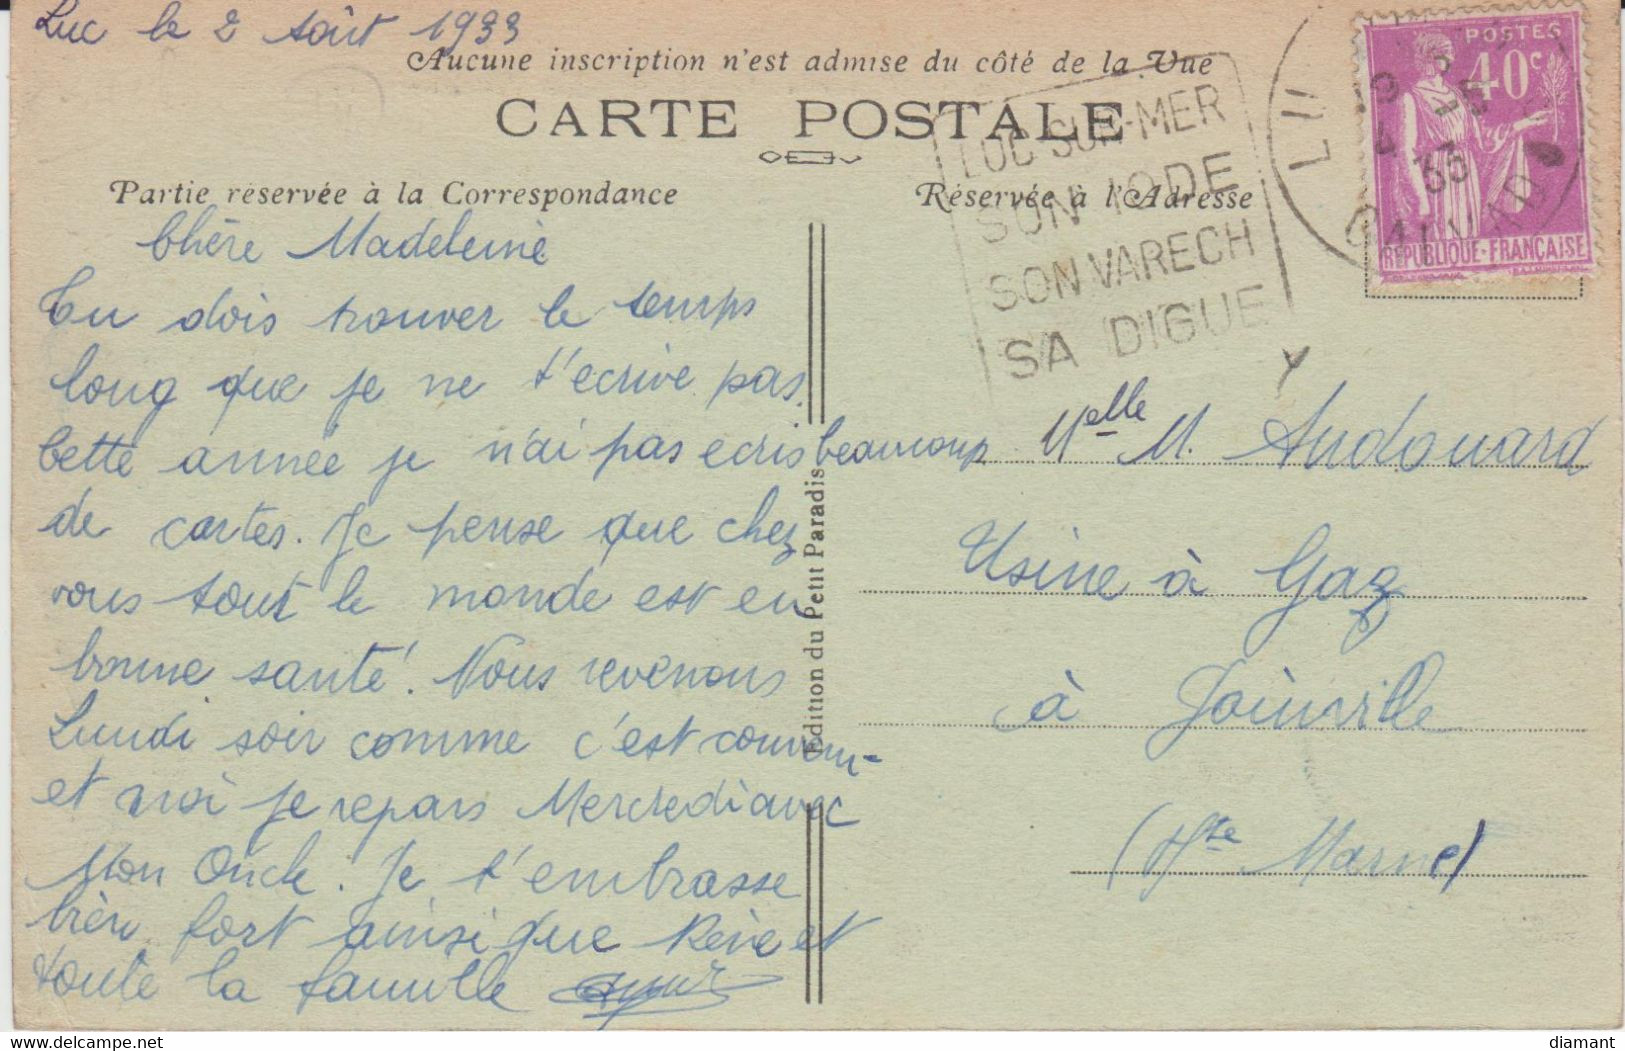 Luc le 2 Août 1933
Aucune inscription n'est admise du côté de la Vue
CARTE POSTALE
Partie réservée à la Correspondance
Réservée à l'Adresse
LUC-SUR-MER
SON IODE
SON VARECH
SA DIGUE
POSTES
40c
REPUBLIQUE-FRANÇAISE
CALVADOS
33
Chère Madeleine
Tu dois trouver le temps
long que je ne t'ecrive pas.
Cette année je n'ai pas ecris beaucoup
de cartes. Je pense que chez
vous tout le monde est en
bonne santé! Nous revenons
Lundi soir comme c'est convenu-
et moi je repars Mercredi avec
Mon Oncle. Je t'embrasse
bien fort ainsi que Réné et
toute la famille
Edition du Petit Paradis
Melle M. Andouard
Usine à Gaz
à Joinville
(Hte Marne)
diamant